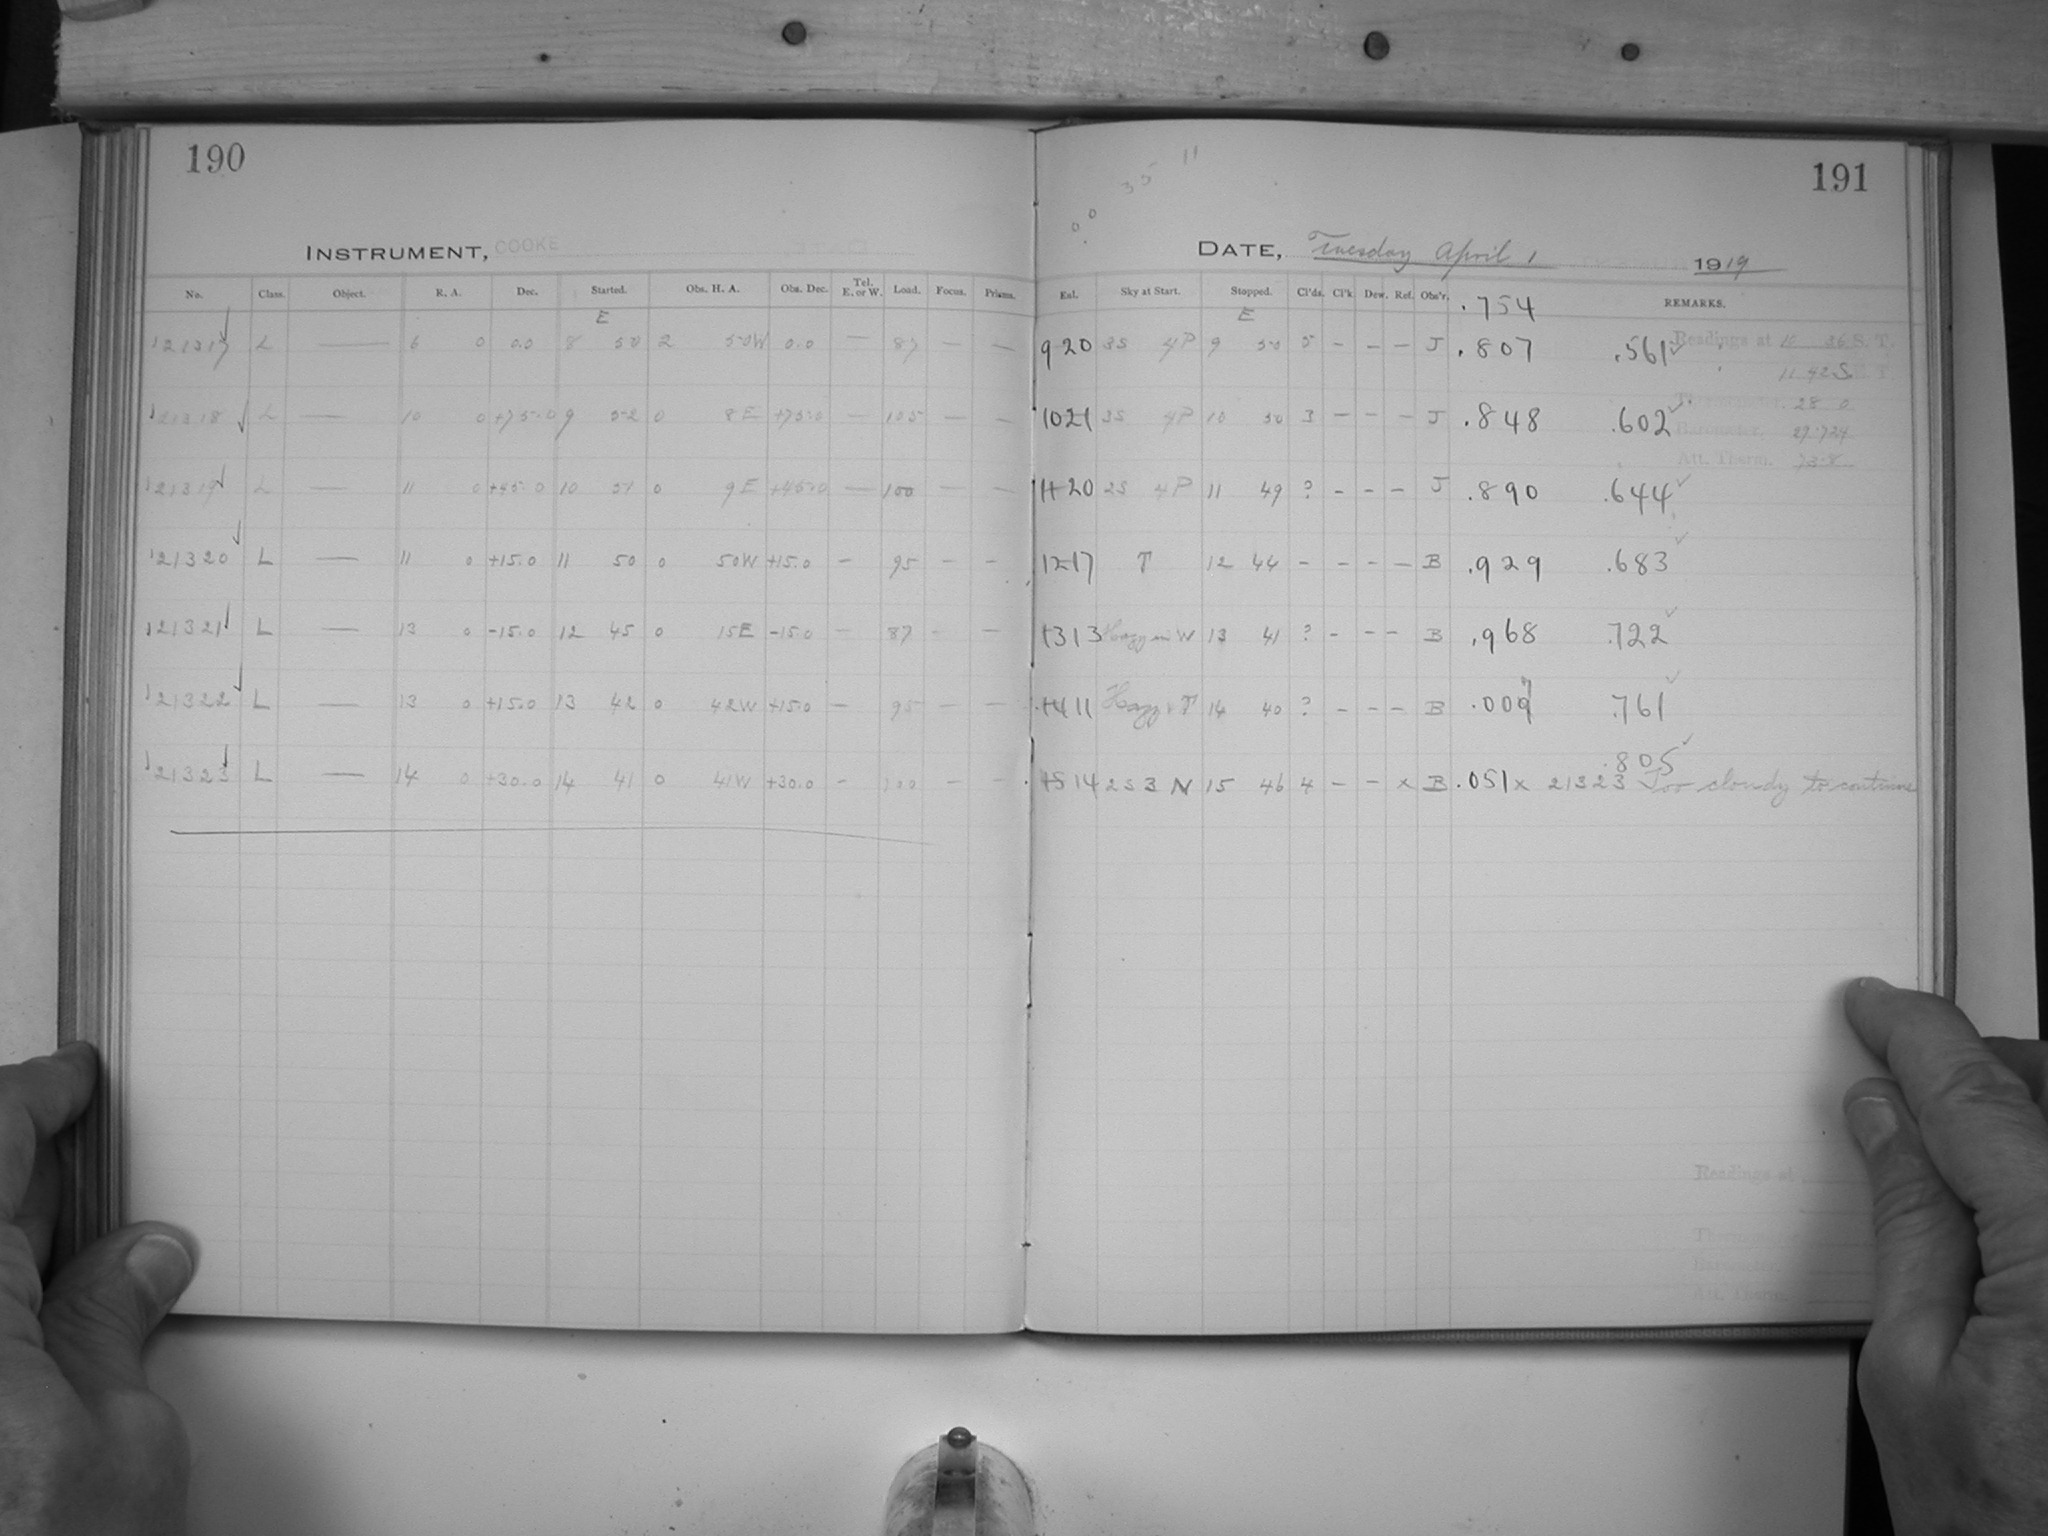 190
INSTRUMENT, COOKE
No. Class. Object. R. A. Dec. Started. Obs. H. A. Obs. Dec. Tel. E. or W. Load. Focus. Prisms.
E
21317 L — 6 0 0.0 8 50 2 50W 0.0 — 87 — —
21318 L — 10 0 +75.0 9 52 0 8E +75.0 — 105 — —
21319 L — 11 0 +45.0 10 51 0 9E +45.0 — 100 — —
21320 L — 11 0 +15.0 11 50 0 50W +15.0 — 95 — —
21321 L — 13 0 -15.0 12 45 0 15E -15.0 — 87 — —
21322 L — 13 0 +15.0 13 42 0 42W +15.0 — 95 — —
21323 L — 14 0 +30.0 14 41 0 41W +30.0 — 100 — —
191
35 11
0.0
DATE, Tuesday April 1 1919
Exl. Sky at Start. Stopped. Cl'ds. Cl'k. Dew. Ref. Obs'r. .754 REMARKS.
E
9 20 3S 4P 9 50 5 - - - J .807 .561 Readings at 10 36 S. T.
11 42 S. T.
10 21 3S 4P 10 50 3 - - - J .848 .602 28 0
Barometer. 29.724
Att. Therm. 73.8
11 20 2S 4P 11 49 ? - - - J .890 .644
12 17 T 12 44 - - - - B .929 .683
13 13 Hazy in W 13 41 ? - - - B .968 .722
14 11 Hazy T 14 40 ? - - - B .009 7 .761
.805
15 14 2S 3 N 15 46 4 - - x B .051 x 21323 Too cloudy to continue
Readings at
Barometer.
Att. Therm.